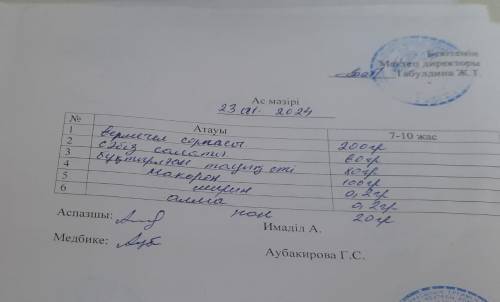 Бекітемін
Мектеп директоры
Габулдина Ж.Т.
Ас мәзірі
23.01. 2024
№ Атауы 7-10 жас
1 вермешел сорпасы 200гр
2 сәбіз салаты 60гр
3 бұқтырылған тауық еті 80гр
4 макарон 100гр
5 ширин 0,2гр
6 алма 0,2гр
нан 20гр
Аспазшы: Имаділ А.
Медбике: Аубакирова Г.С.